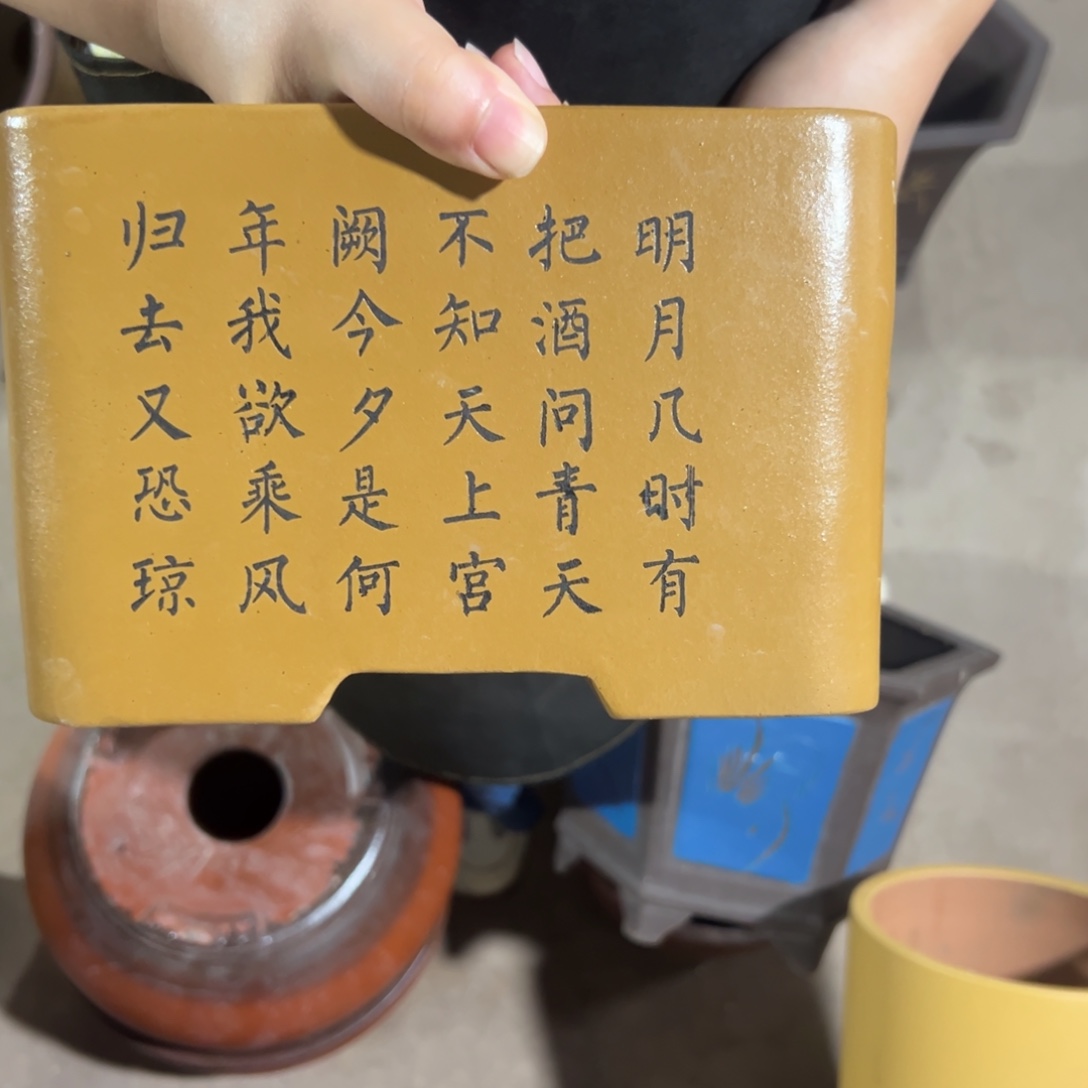 明月几时有
把酒问青天
不知天上宫
阙今夕是何
年我欲乘风
归去又恐琼